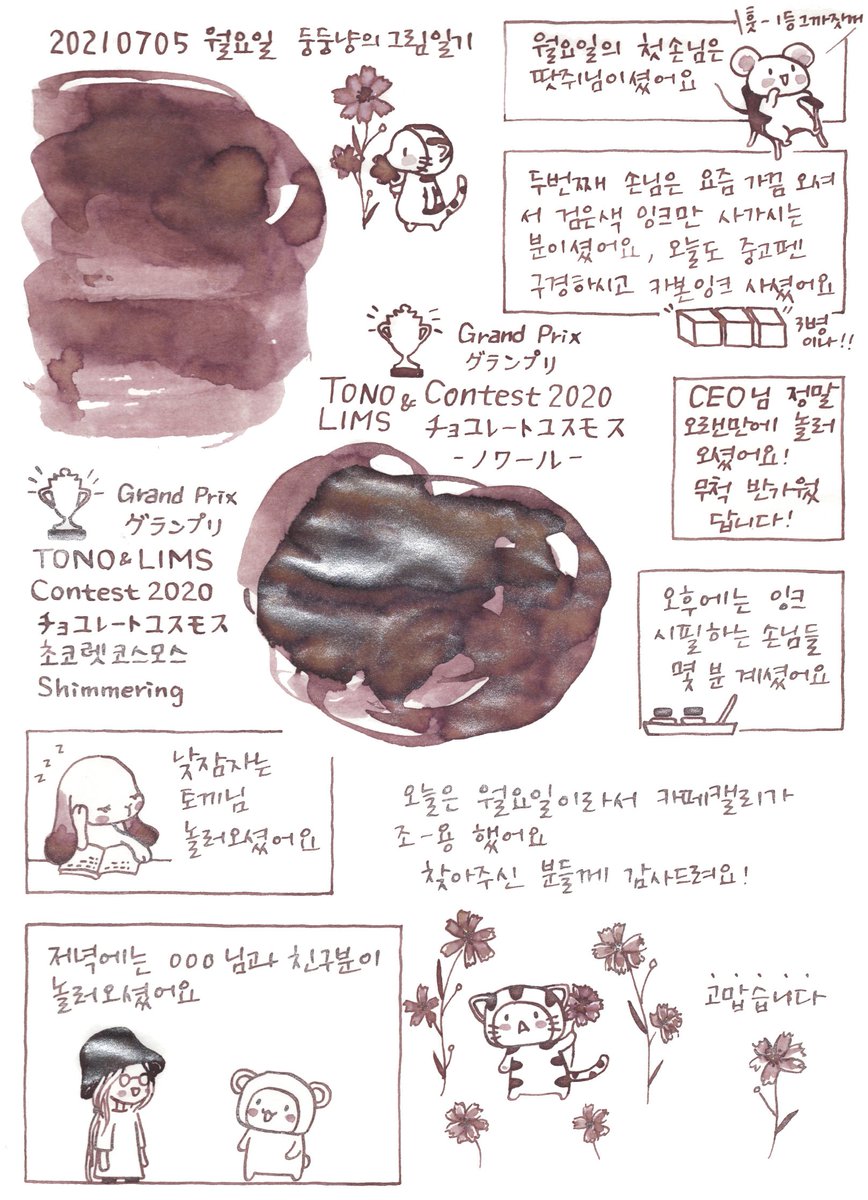 20210705 월요일 둥둥냥의 그림일기
훗-1등그까짓꺼
월요일의 첫손님은
땃쥐님이셨어요
두번째 손님은 요즘 가끔 오셔
서 검은색 잉크만 사가시는
분이셨어요, 오늘도 중고펜
구경하시고 카본잉크 사셨어요
3병
이나!!
Grand Prix
グランプリ
TONO & LIMS Contest 2020
チョコレートコスモス
-ノワール-
CEO님 정말
오랜만에 놀러
오셨어요!
무척 반가웠
답니다!
Grand Prix
グランプリ
TONO & LIMS
Contest 2020
チョコレートコスモス
초코렛코스모스
Shimmering
오후에는 잉크
시필하는 손님들
몇 분 계셨어요
z z z
낮잠자는
토끼님
놀러오셨어요
오늘은 월요일이라서 카페캘리가
조-용 했어요
찾아주신 분들께 감사드려요!
저녁에는 ooo님과 친구분이
놀러오셨어요
고맙습니다